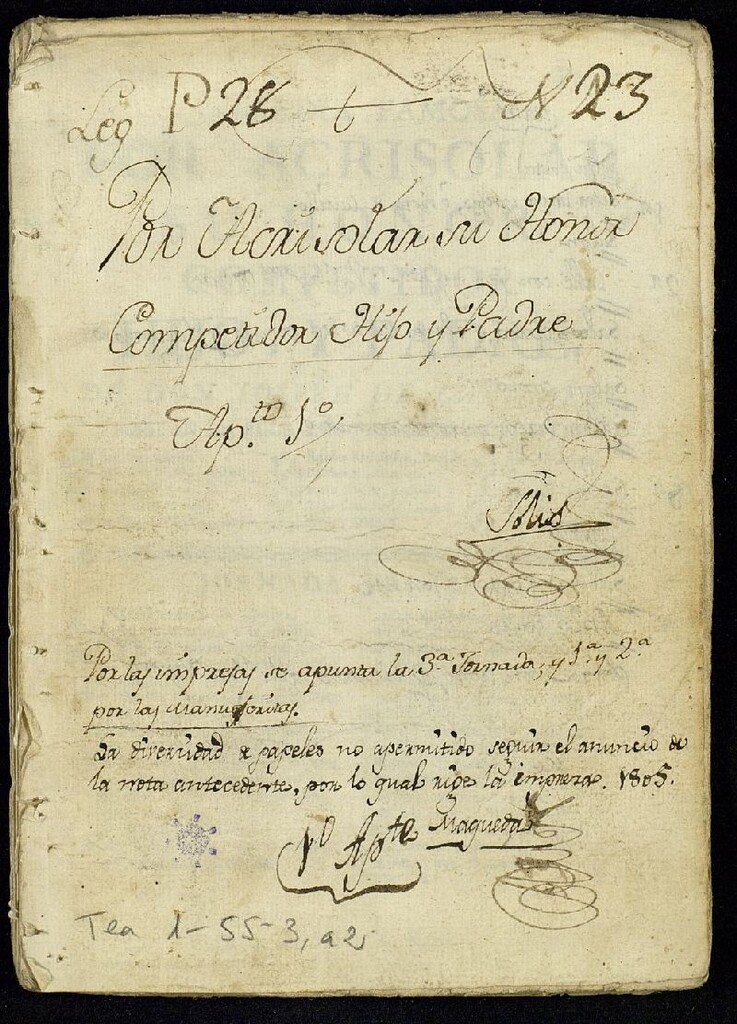 Leg P 28 N 23
Por Acrisolar su Honor
Competidor Hijo y Padre
Ap.to 1º
Mis
Por las impresas se apunta la 3.ª Jornada, y 1.ª y 2.ª
por las Manuscritas.
La diversidad de papeles no a permitido seguir el anuncio de
la nota antecedente, por lo qual rije la impresa. 1805.
1º Apte Maqueda
Tea 1-55-3, a2